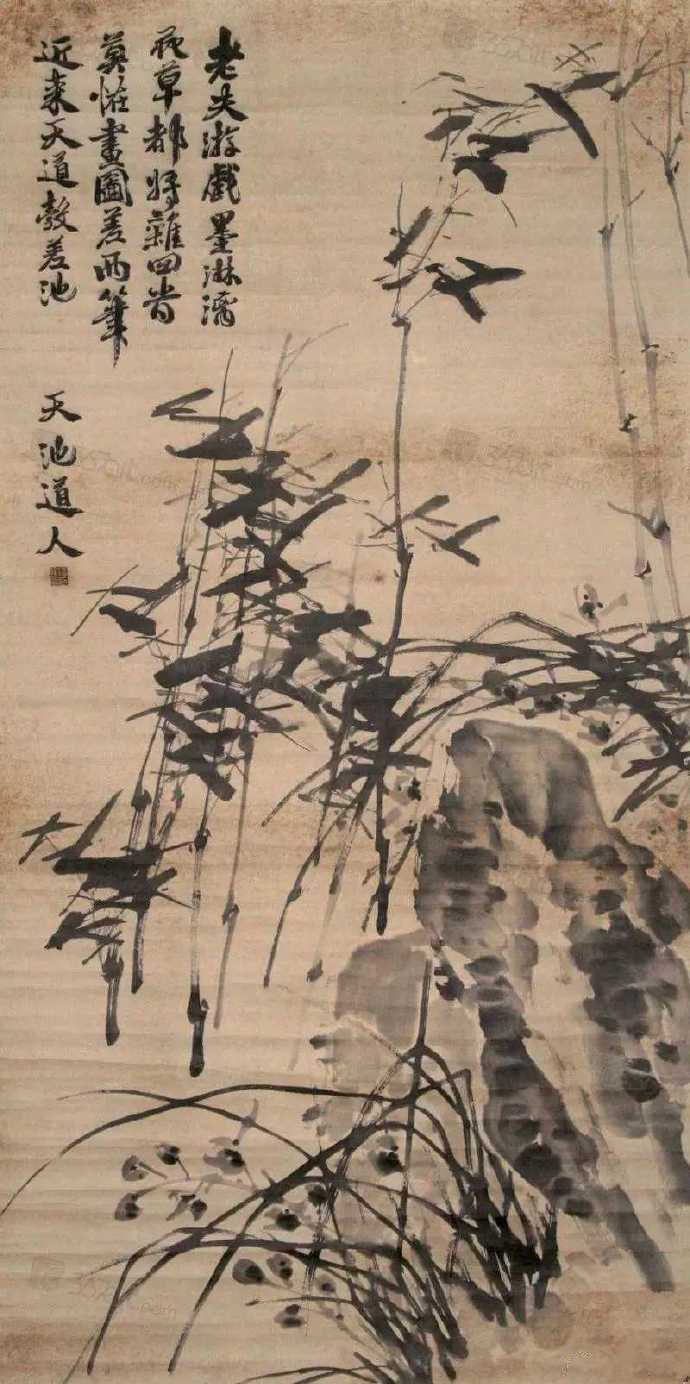 老夫游戲墨淋漓
花草都將雜四旹
莫恠畫圖差兩筆
近来天道彀差池
天池道人